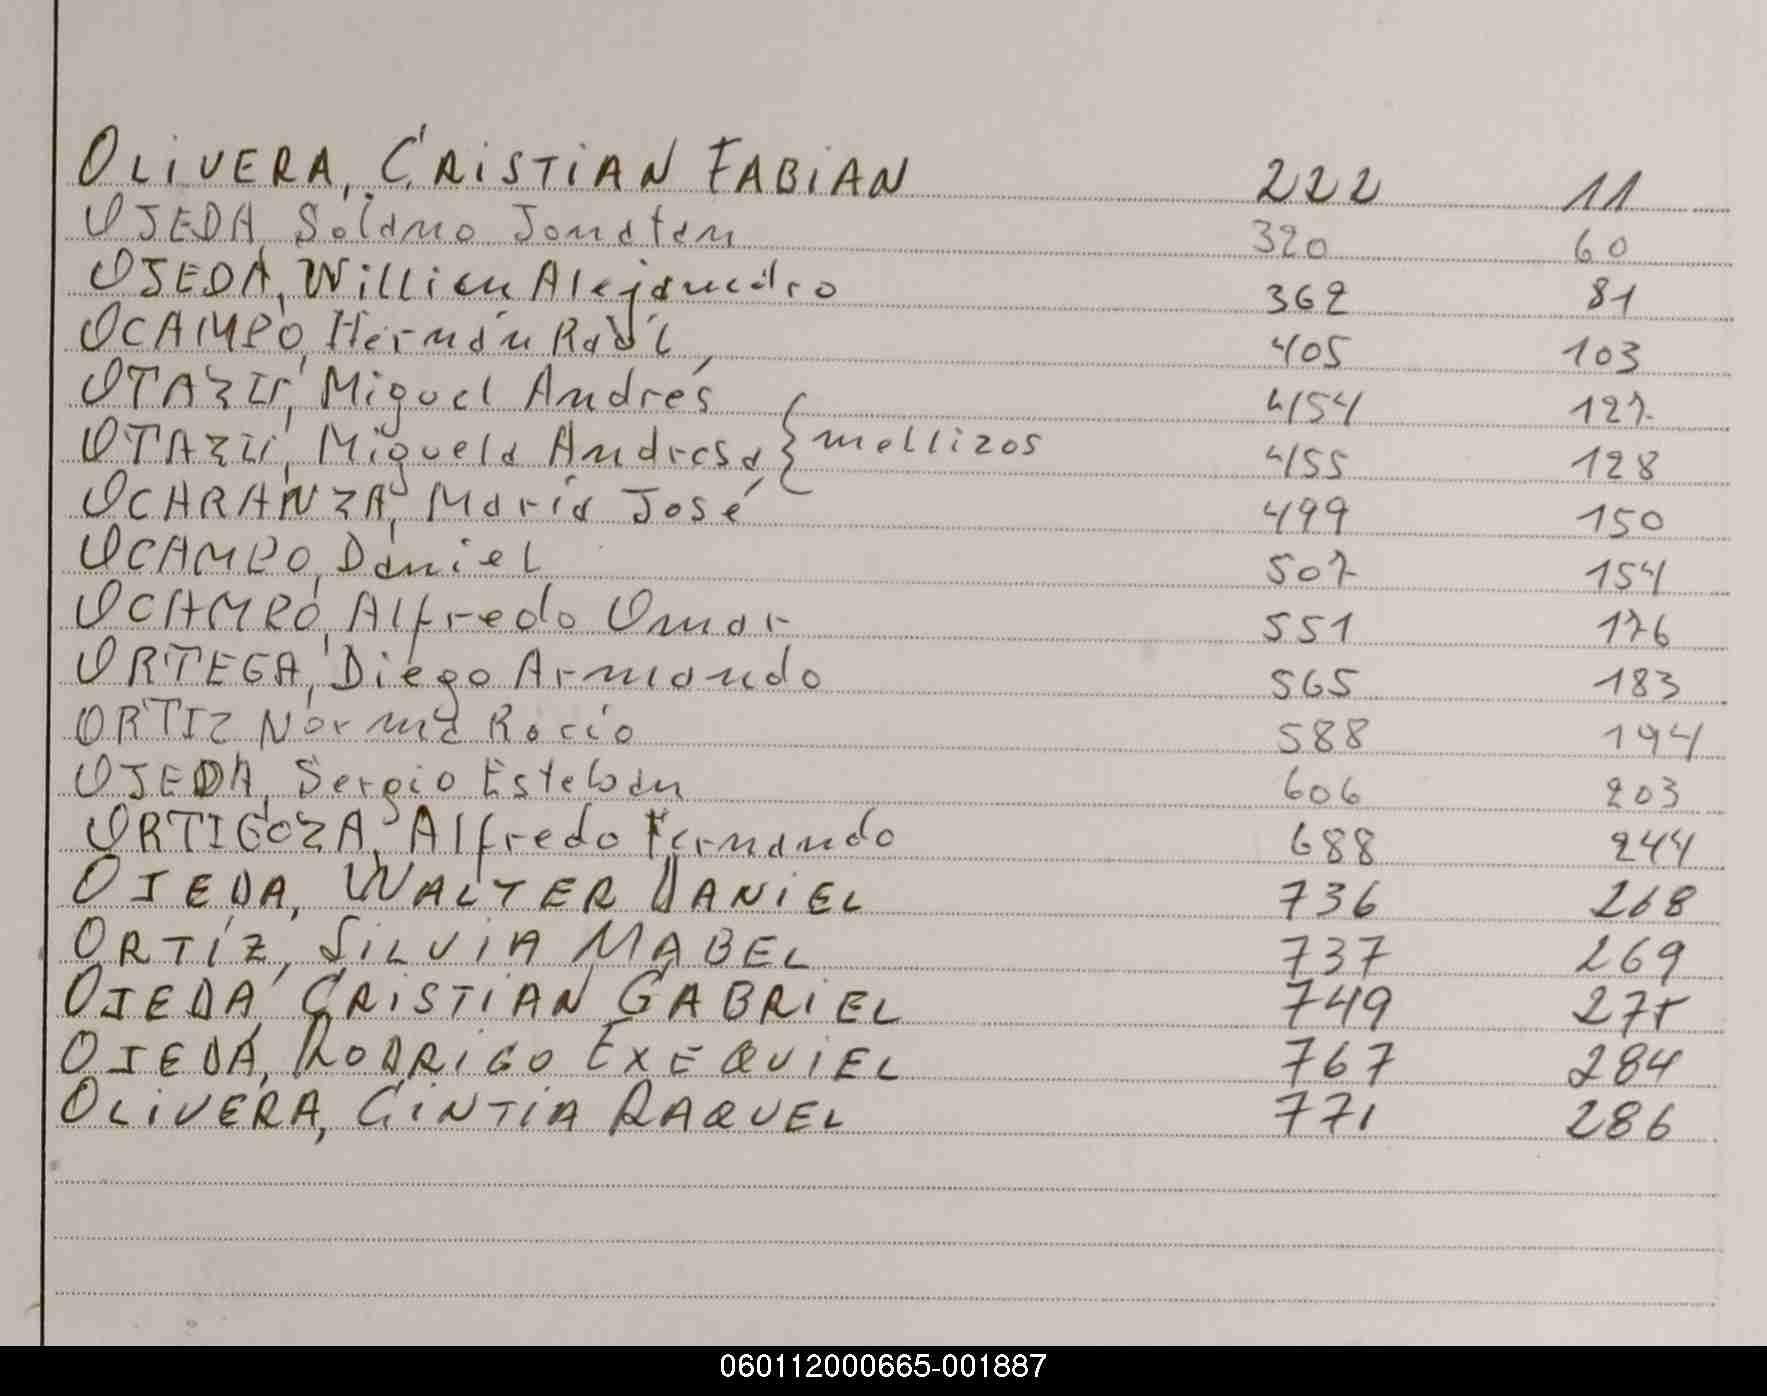 OLIVERA, CRISTIAN FABIAN 222 11
OJEDA, Solano Jonatan 320 60
OJEDA, Willian Alejandro 362 81
OCAMPO, Hernán Raúl 405 103
OTAZU, Miguel Andrés 454 127
OTAZU, Miguela Andresa } mellizos 455 128
OCARANZA, María José 499 150
OCAMPO, Daniel 507 154
OCAMPO, Alfredo Omar 551 176
ORTEGA, Diego Armando 565 183
ORTIZ Norma Rocío 588 194
OJEDA, Sergio Esteban 606 203
ORTIGOZA, Alfredo Fernando 688 244
OJEDA, WALTER DANIEL 736 268
ORTÍZ, SILVIA MABEL 737 269
OJEDA, CRISTIAN GABRIEL 749 275
OJEDA, RODRIGO EXEQUIEL 767 284
OLIVERA, CINTIA RAQUEL 771 286
060112000665-001887